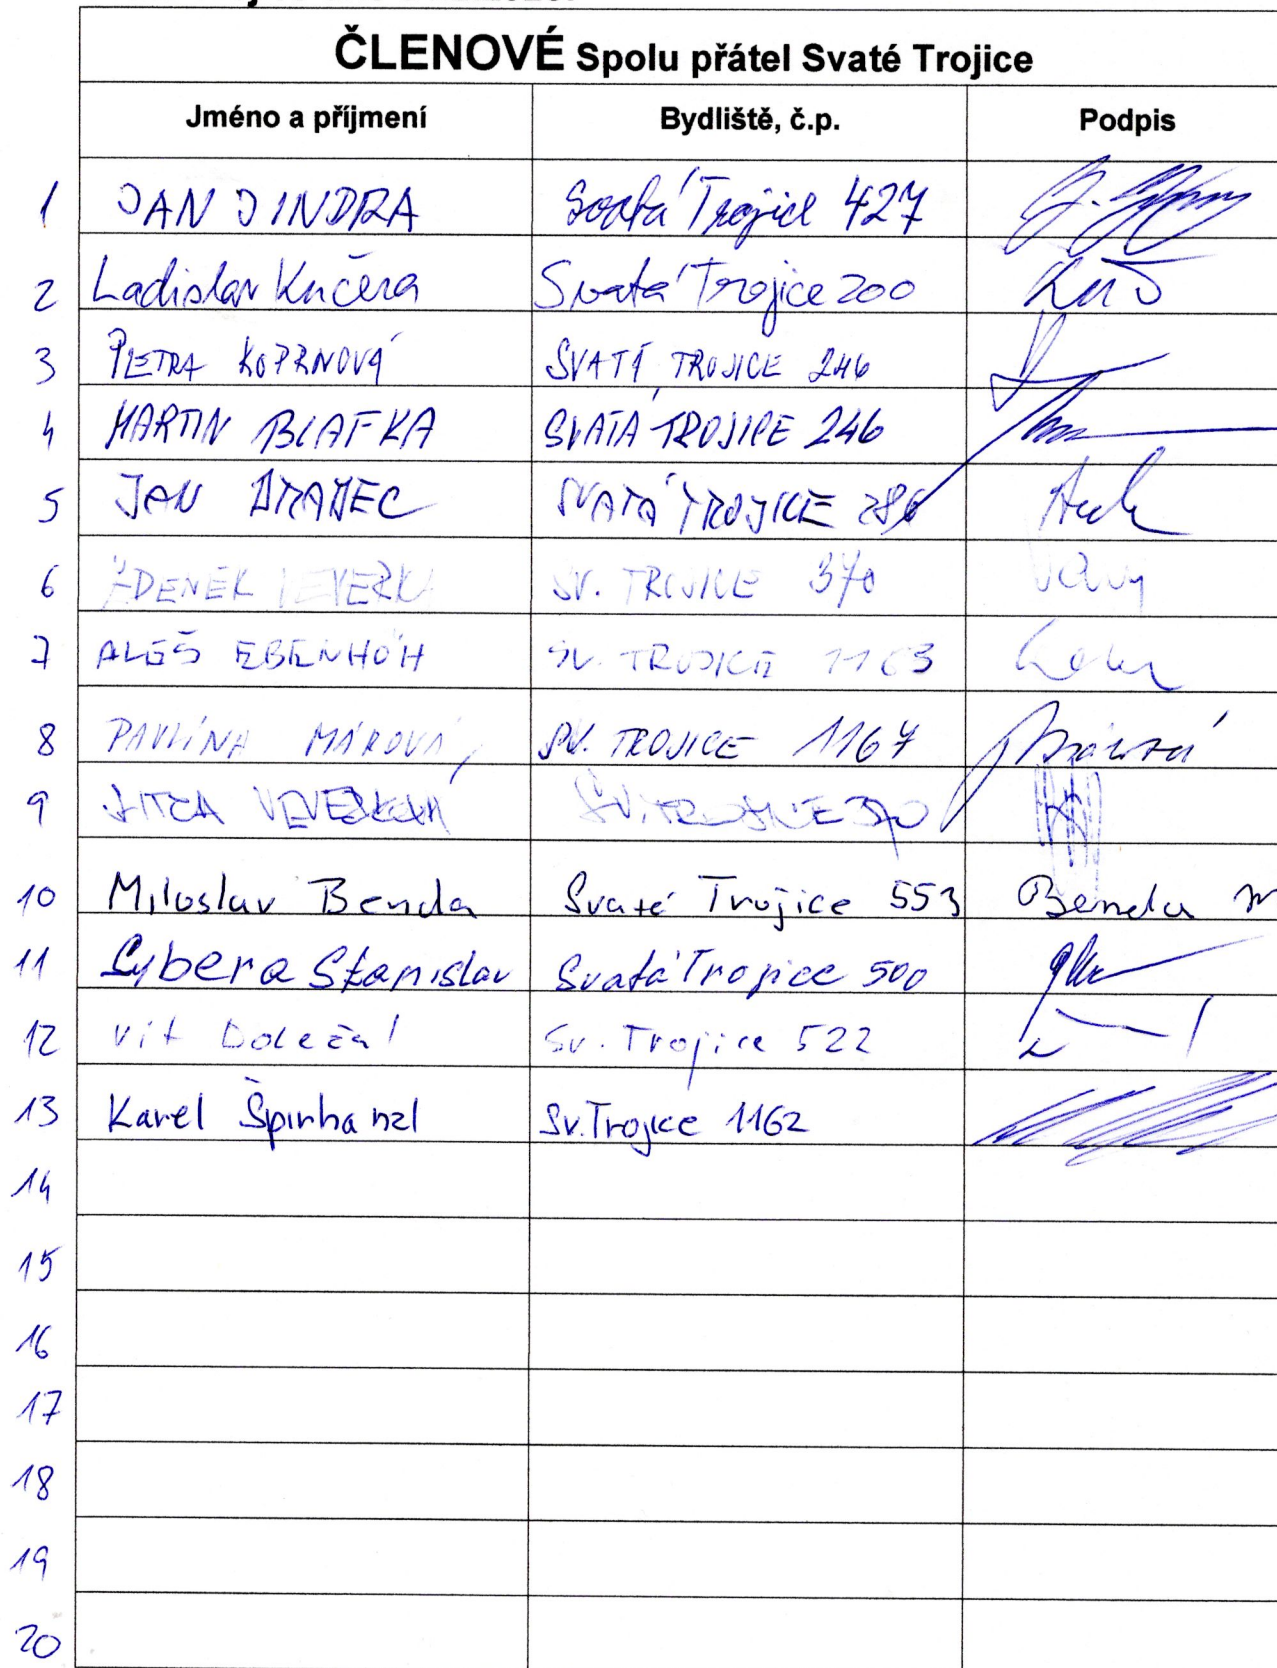 ČLENOVÉ Spolu přátel Svaté Trojice
Jméno a příjmení Bydliště, č.p. Podpis
1 JAN JINDRA Svatá Trojice 427
2 Ladislav Kučera Svatá Trojice 200
3 PETRA SVATÁ TROJICE 246
4 MARTIN BLAFKA SVATÁ TROJICE 246
5 JAN SVATÁ TROJICE 286
6 ZDENĚK SV. TROJICE 370
7 ALEŠ EBENHÖH SV. TROJICE 1163
8 PAVLÍNA MÁROVÁ SV. TROJICE 1167
9 JITKA SV. TROJICE 370
10 Miloslav Benda Svaté Trojice 553 Benda M
11 Lybera Stanislav Svatá Trojice 500
12 Vít Doležal Sv. Trojice 522
13 Karel Špirhanzl Sv. Trojice 1162
14
15
16
17
18
19
20